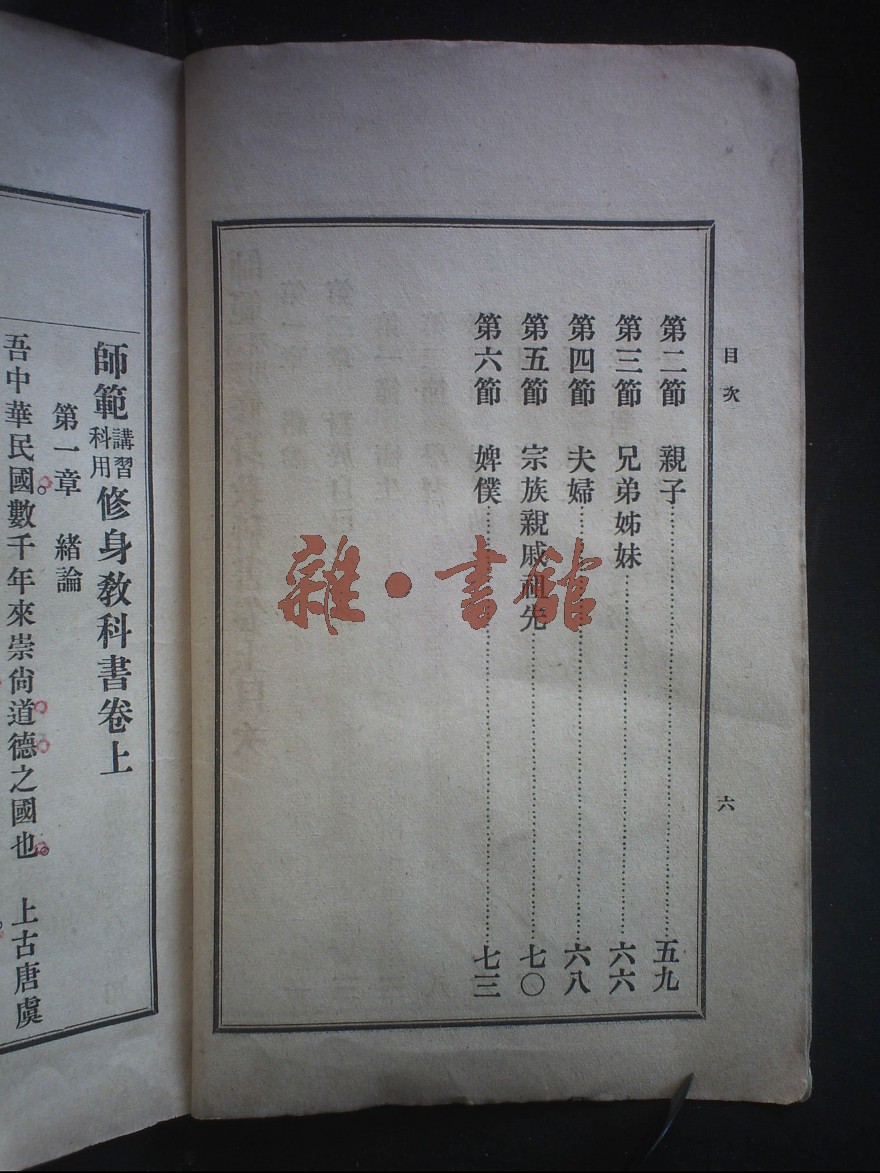 目次
第二節　親子……五九
第三節　兄弟姊妹……六六
第四節　夫婦……六八
第五節　宗族親戚祖先……七〇
第六節　婢僕……七三
六
雜·書館
師範講習科用修身教科書卷上
第一章　緒論
吾中華民國數千年來崇尙道德之國也　上古唐虞